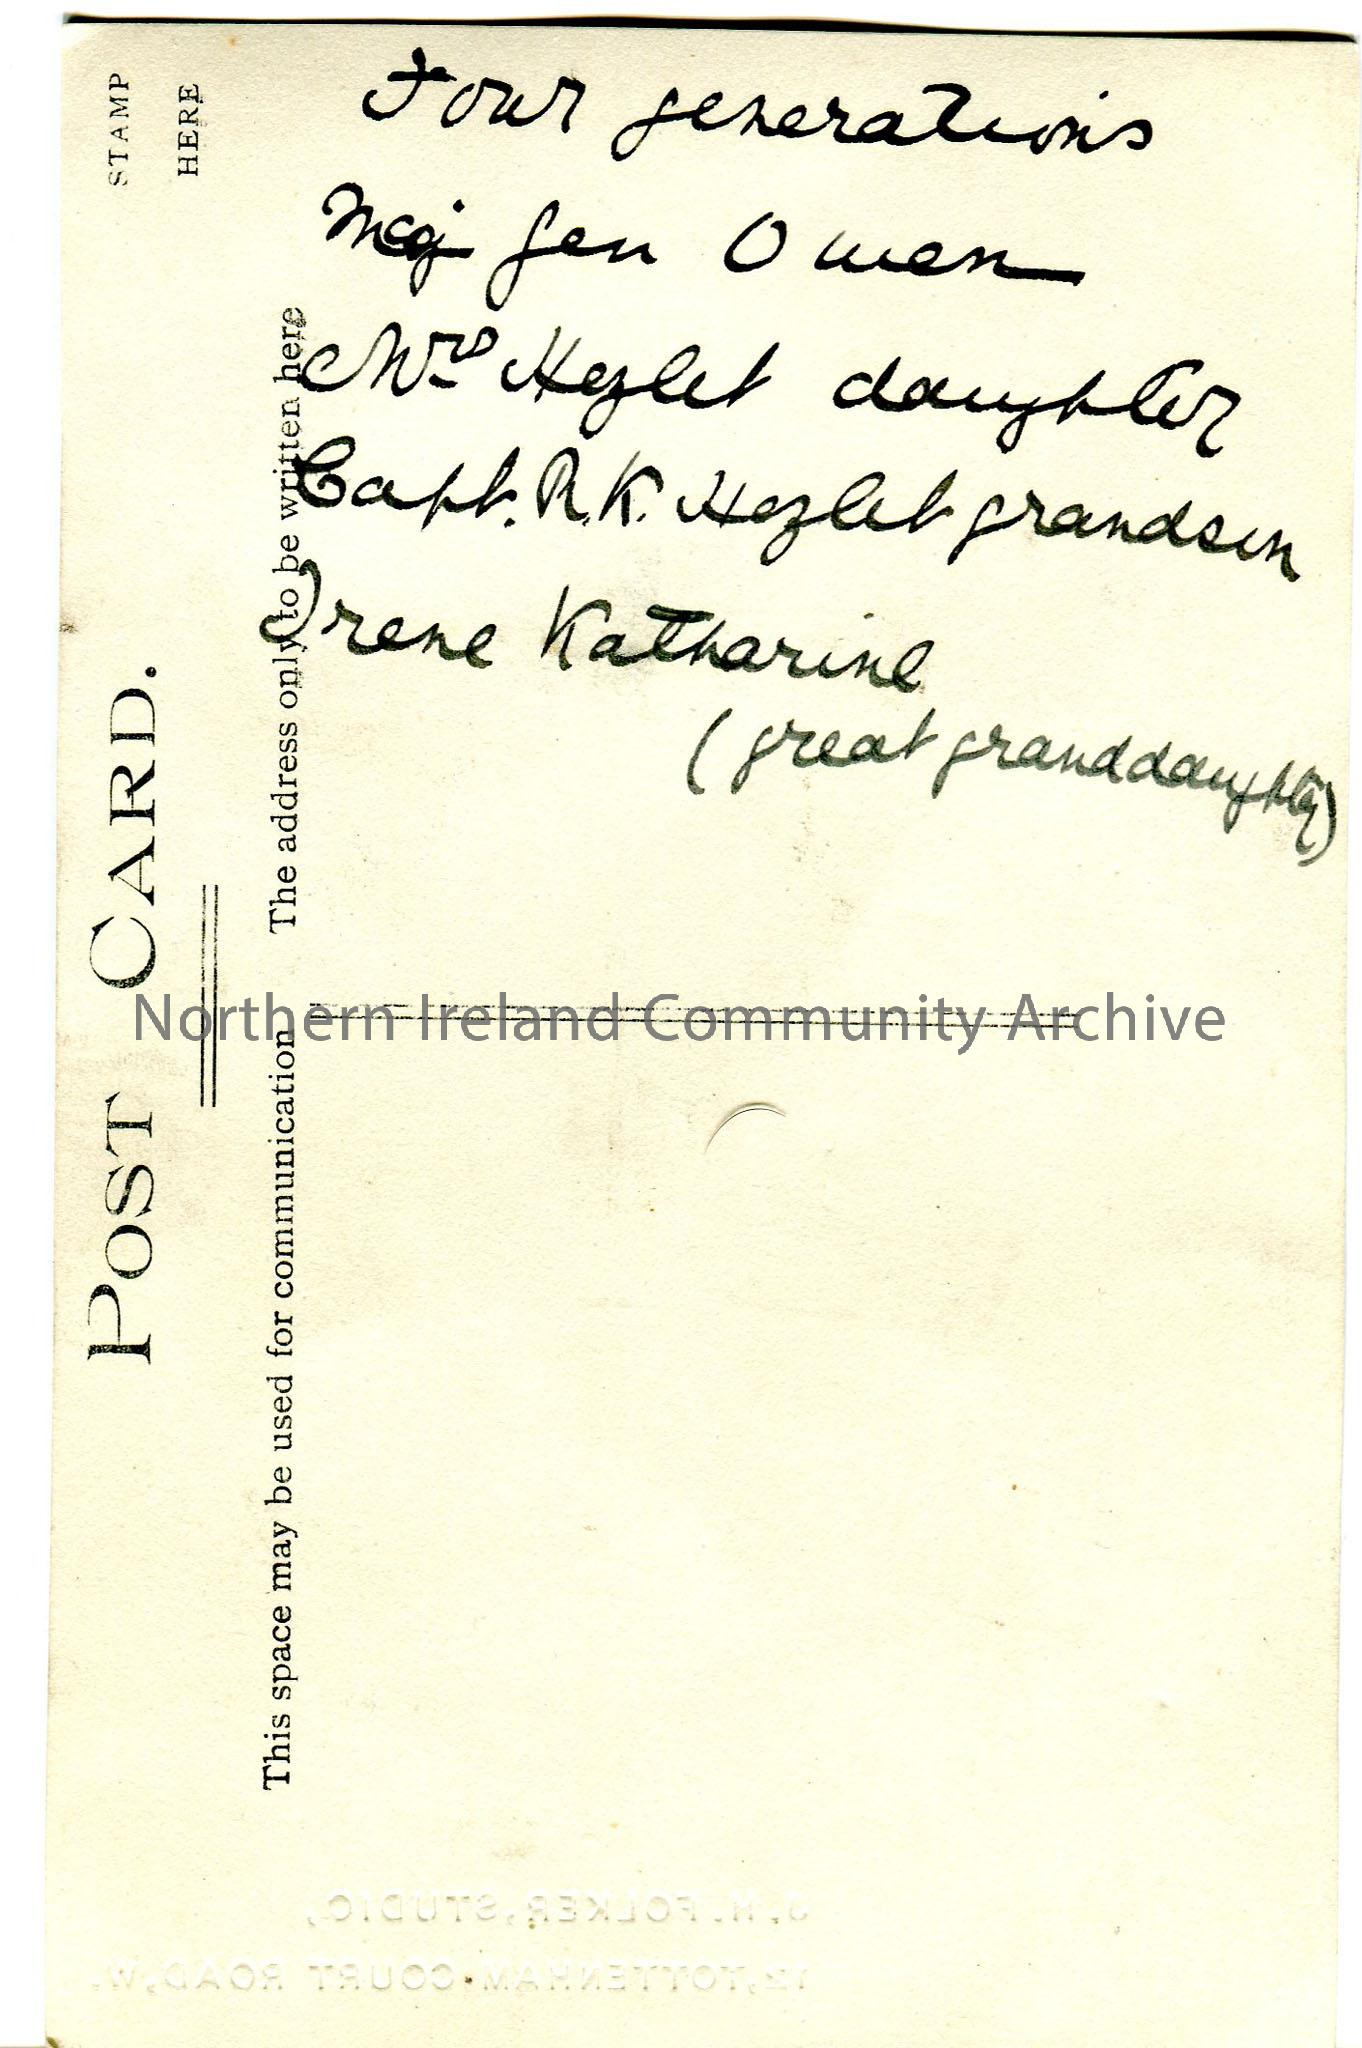 Four generations
Maj Gen Owen
Mrs Hezlet daughter
Capt. R.K. Hezlet grandson
Irene Katharine
(great granddaughter)
STAMP
HERE
POST CARD.
The address only to be written here
This space may be used for communication
Northern Ireland Community Archive
J. H. FOLKER, STUDIO,
12, TOTTENHAM COURT ROAD, W.